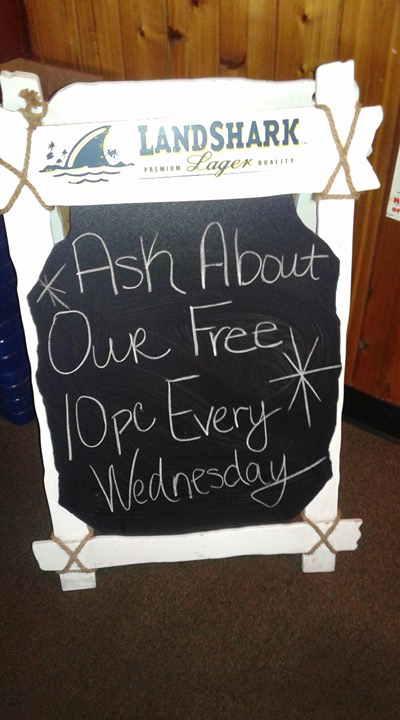 LANDSHARK
PREMIUM Lager QUALITY
Ask About
Our Free
10pc Every
Wednesday